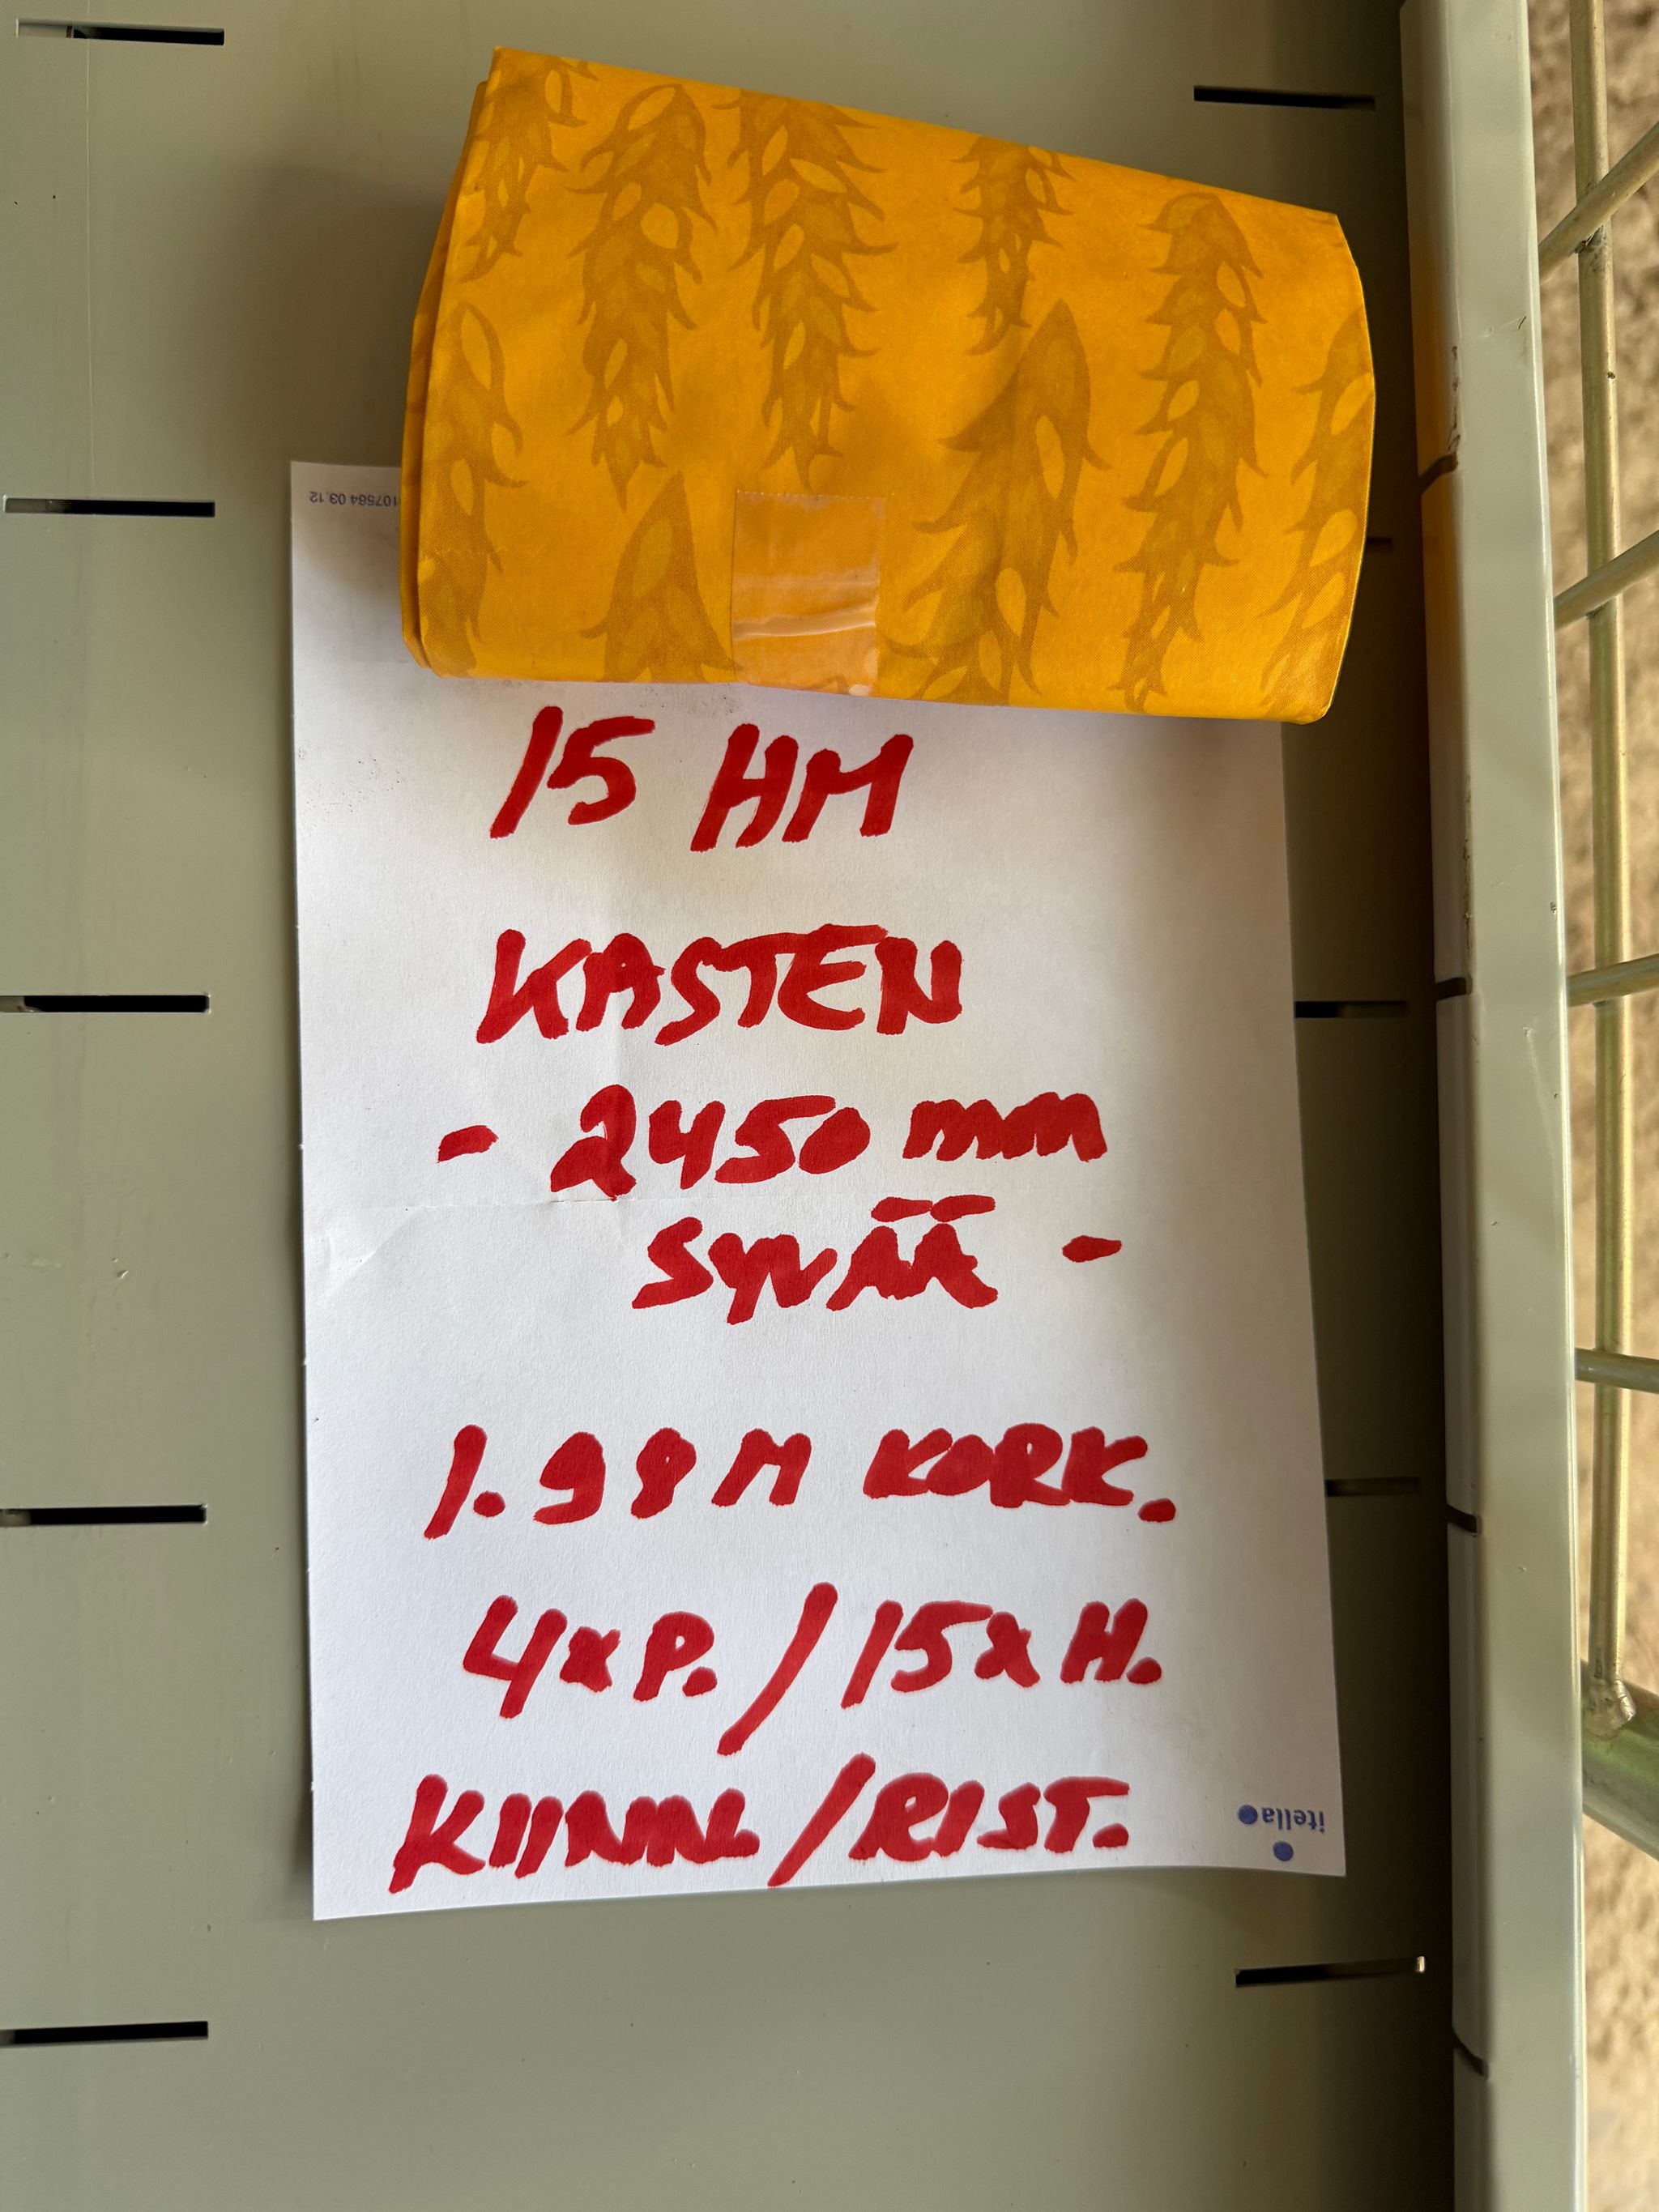 107564 03.12
15 HM
KASTEN
- 2450 mm
SYVÄÄ -
1.98 M KORK.
4x P. / 15x H.
KIINN. / RIST.
itella